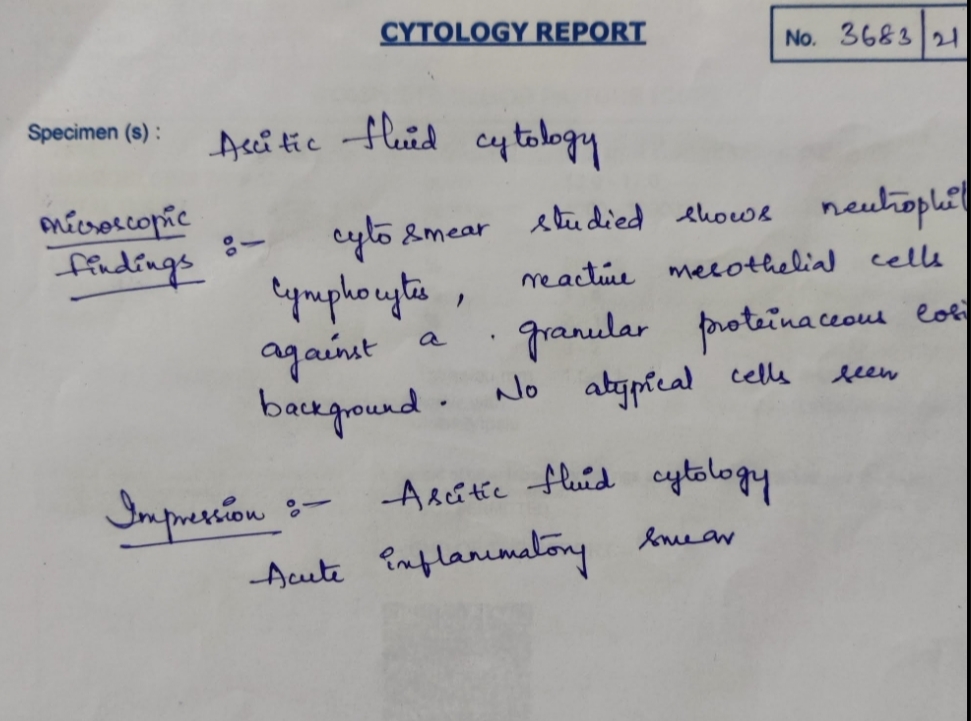 CYTOLOGY REPORT
No. 3683/21
Specimen (s) : Ascitic fluid cytology
Microscopic findings :- cyto smear studied shows neutrophil
lymphocytes, reactive mesothelial cells
against a granular proteinaceous eosi
background. No atypical cells seen
Impression :- Ascitic fluid cytology
Acute inflammatory smear